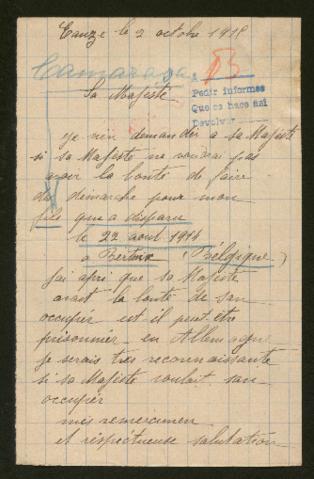 Eauze le 2 octobre 1915
Camarasa
Sa Majesté
Pedir informes
Que se hace así
Devolver
Je vien demander a sa Majesté
si sa Majesté ne voudrai pas
avoir la bonté de faire
de démarche pour mon
fils que a disparu
le 22 aout 1914
a Bertrix (Bélgique)
j'ai apri que sa Majesté
avait la bonté de s'an
occupér est il peut être
prisonnier en Allemagne
je serais tres reconnaissante
si sa Majesté voulait s'an
occupér
mes remercimen
et réspéctueuse salutation